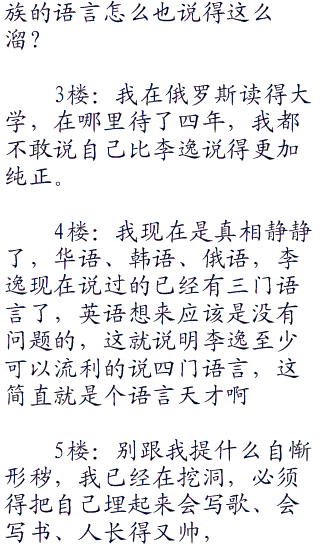 族的语言怎么也说得这么
溜？
3楼：我在俄罗斯读得大
学，在哪里待了四年，我都
不敢说自己比李逸说得更加
纯正。
4楼：我现在是真相静静
了，华语、韩语、俄语，李
逸现在说过的已经有三门语
言了，英语想来应该是没有
问题的，这就说明李逸至少
可以流利的说四门语言，这
简直就是个语言天才啊
5楼：别跟我提什么自惭
形秽，我已经在挖洞，必须
得把自己埋起来会写歌、会
写书、人长得又帅，